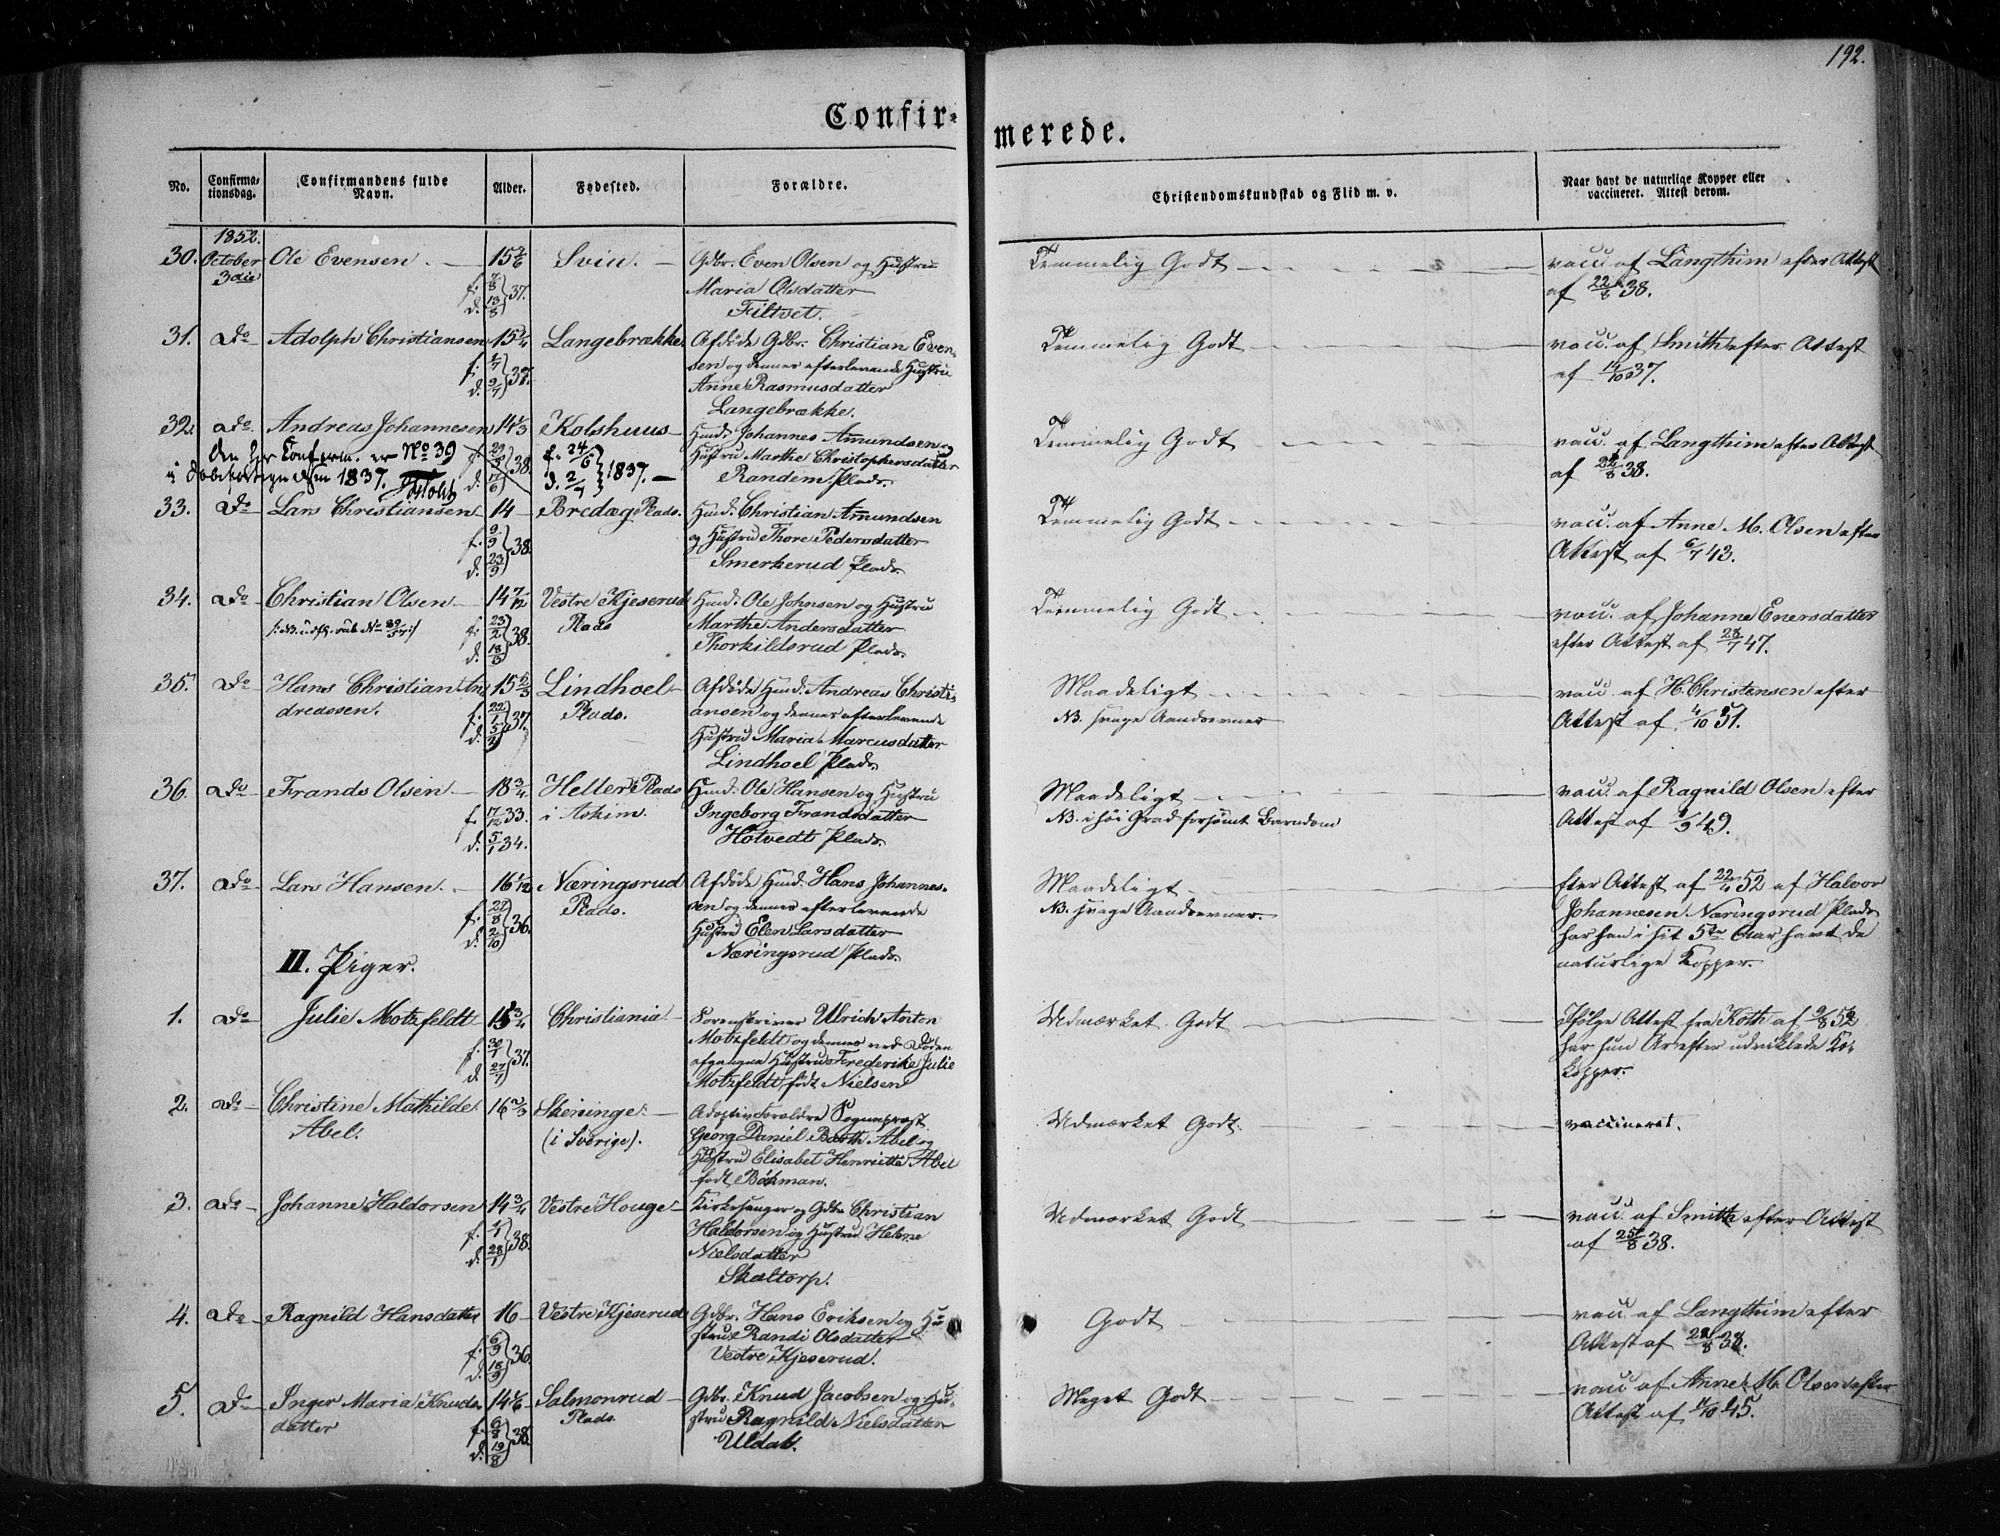 192.
Confir-
merede.
No.
Confirma-
tionsdag.
Confirmandens fulde
Navn.
Alder.
Fødested.
Forældre.
Christendomskundskab og Flid m. v.
Naar havt de naturlige Kopper eller
vaccineret. Attest derom.
1852.
30. October Ole Evensen. 15 Svin. Gdbr. Even Olsen og Hustru Temmelig Godt vacc. af Langthim efter Attest
3die f. 37. Maria Olsdatter af 22/8 38.
d. 13/8 Filtvet.
31. Do Adolph Christiansen 15 1/4 Langebrække. Afdøde Gdbr. Christian Even- Temmelig Godt vacc. af Smith efter Attest
f. 37. sen og dennes efterlevende Hustru af 14/10 37.
d. 9/7 Anne Rasmusdatter
Langebrække.
32. Do. Andreas Johannesen 14 1/3 Kolshuus Huusm. Johannes Amundsen og Temmelig Godt vacc. af Langthim efter Attest
den her Confirm. er No 39 f. 38. f. 24/6 1837. Hustru Marthe Christophersdatter af 22/8 38.
i Døbefortegnelsen 1837. d. 17/6 d. 2/7 Randem Plads.
33. Do Lars Christiansen 14 Bredag Plads. Huusm. Christian Amundsen Temmelig Godt vacc. af Anne M. Olsen efter
f. 9/9 38. og Hustru Thore Pedersdatter Attest af 6/7 43.
d. 23/9 Smerkerud Plads.
34. Do Christian Olsen 14 7/12 Vestre Kjeserud Huusm. Ole Johnsen og Hustru Temmelig Godt vacc. af Johanne Enersdatter
f. 23/2 38. Plads Marthe Andersdatter efter Attest af 28/7 47.
d. 18/3 Thorkildsrud Plads.
35. Do Hans Christian An- 15 2/3 Lindhoel Afdøde Huusm. Andreas Christi- Maadeligt vacc. af H. Christensen efter
dreasen. f. 22/1 37. Plads. ansen og dennes efterlevende NB. svage Aandsevner Attest af 4/10 51.
d. 5/2 Hustru Maria Marcusdatter
Lindhoel Plads.
36. Do Frands Olsen 18 3/4 Heller Plads Huusm. Ole Hansen og Hustru Maadeligt vacc. af Ragnild Olsen efter
f. 17/12 33. i Askim. Ingeborg Frandsdatter NB. i høi Grad forsømt Barndom Attest af 49.
d. 5/1 34. Hotvedt Plads.
37. Do Lars Hansen. 16 1/12 Næringsrud Afdøde Huusm. Hans Johannes- Maadeligt Efter Attest af 22/4 52 af Halvor
f. 27/8 36. Plads. sen og dennes efterlevende NB. svage Aandsevner. Johannesen Næringsrud Plads
d. 2/10 Hustru Elen Larsdatter har han i sit 5te Aar havt de
Næringsrud Plads. naturlige Kopper.
II. Piger.
1. Do Julie Motzfeldt 15 3/4 Christiania Sorenskriver Ulrich Anton Udmærket Godt Ifølge Attest fra Koth af 9/8 52
f. 37. Motzfeldt og dennes ved Døden har hun Ar efter udviklede Ko-
d. 27/7 afgangne Hustru Frederike Julie kopper.
Motzfeldt født Nielsen
2. Do Christine Mathilde 16 2/3 Skeninge Adoptivforældre Sognepræst Udmærket Godt. vaccineret.
Abel. (i Sverige). Georg Daniel Barth Abel og
Hustru Elisabet Henriette Abel
født Böhman.
3. Do Johanne Haldorsen 14 3/4 Vestre Houge Kirkesanger og Gdbr. Christian Udmærket Godt vacc. af Smith efter Attest
f. 1/1 38. Haldorsen og Hustru Helene af 25/8 38.
d. 28/1 Nielsdatter
Skaltorp.
4. Do Ragnild Hansdatter 16 Vestre Kjeserud Gdbr. Hans Eriksen og Hu- Godt vacc. af Langthim efter
f. 6/9 36. stru Randi Olsdatter Attest af 22/8 38.
d. 18/9 Vestre Kjeserud.
5. Do Inger Maria Knuds- 14 1/6 Salmonrud Gdbr. Knud Jacobsen og Hu- Meget Godt vacc. af Anne M. Olsen efter
datter f. 6/8 38. Plads. stru Ragnild Nielsdatter Attest af 45.
d. 19/8 Uldal.